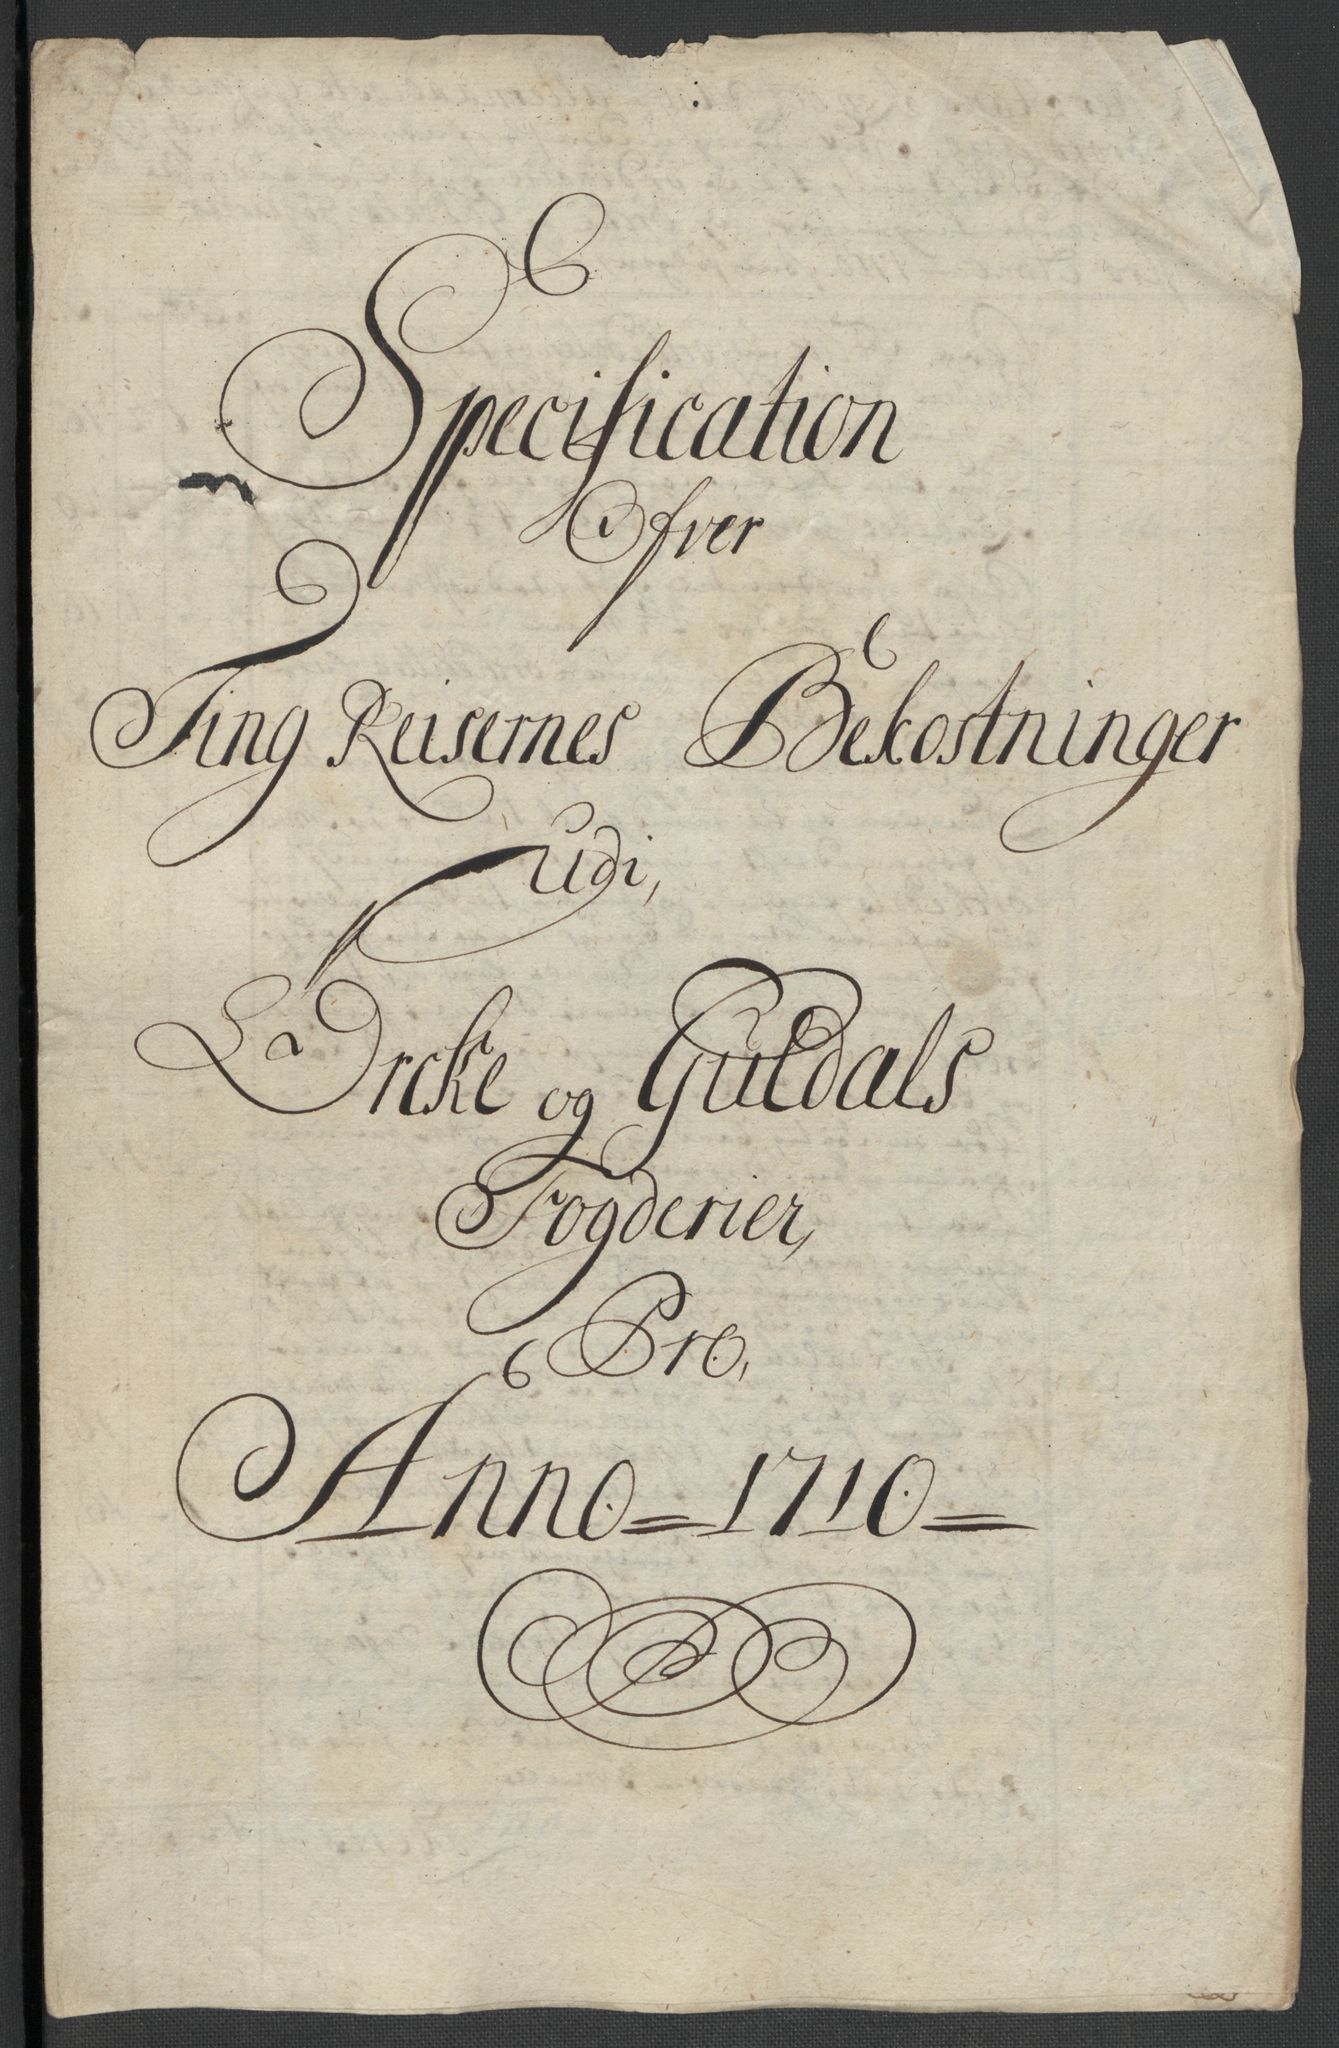 Specification
Ofver
Ting Reisernes Bekostninger
Udi,
Orcke og Guldals
Fogderier,
Pro,
Anno = 1710 =